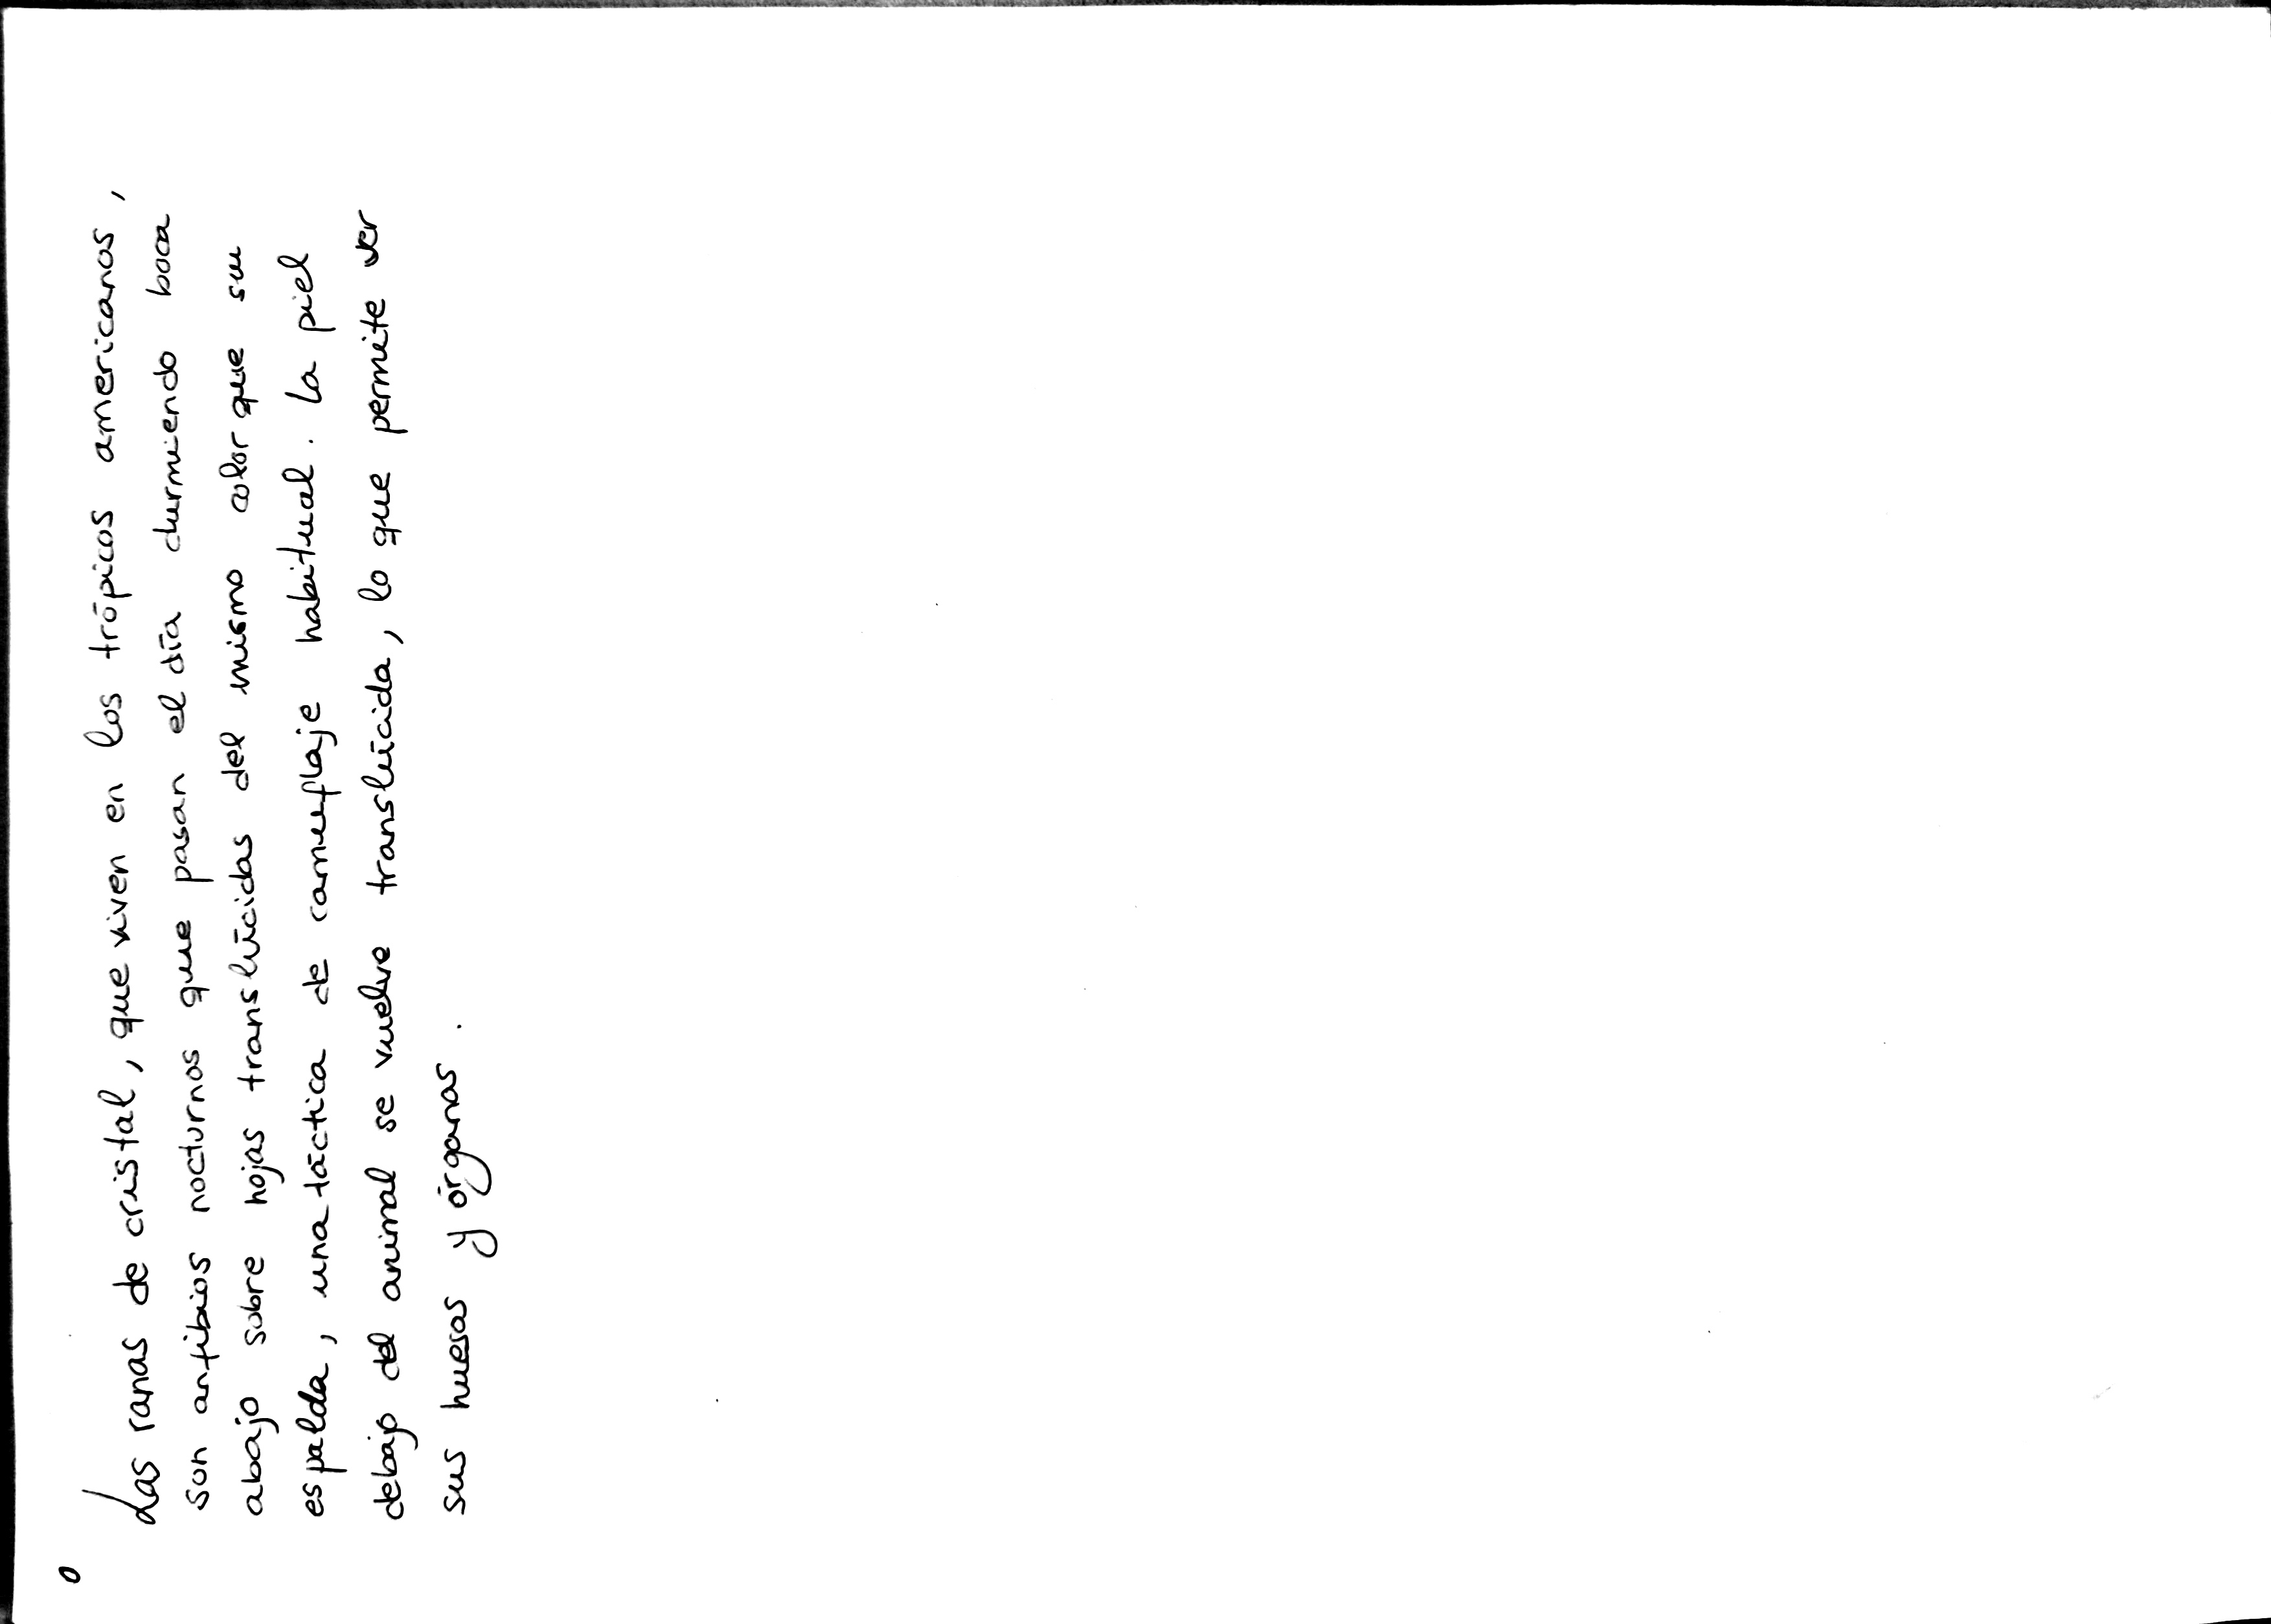 0
Las ranas de cristal, que viven en los trópicos americanos,
son anfibios nocturnos que pasan el día durmiendo boca
abajo sobre hojas translúcidas del mismo color que su
espalda, una táctica de camuflaje habitual. La piel
debajo del animal se vuelve translúcida, lo que permite ver
sus huesos y órganos.